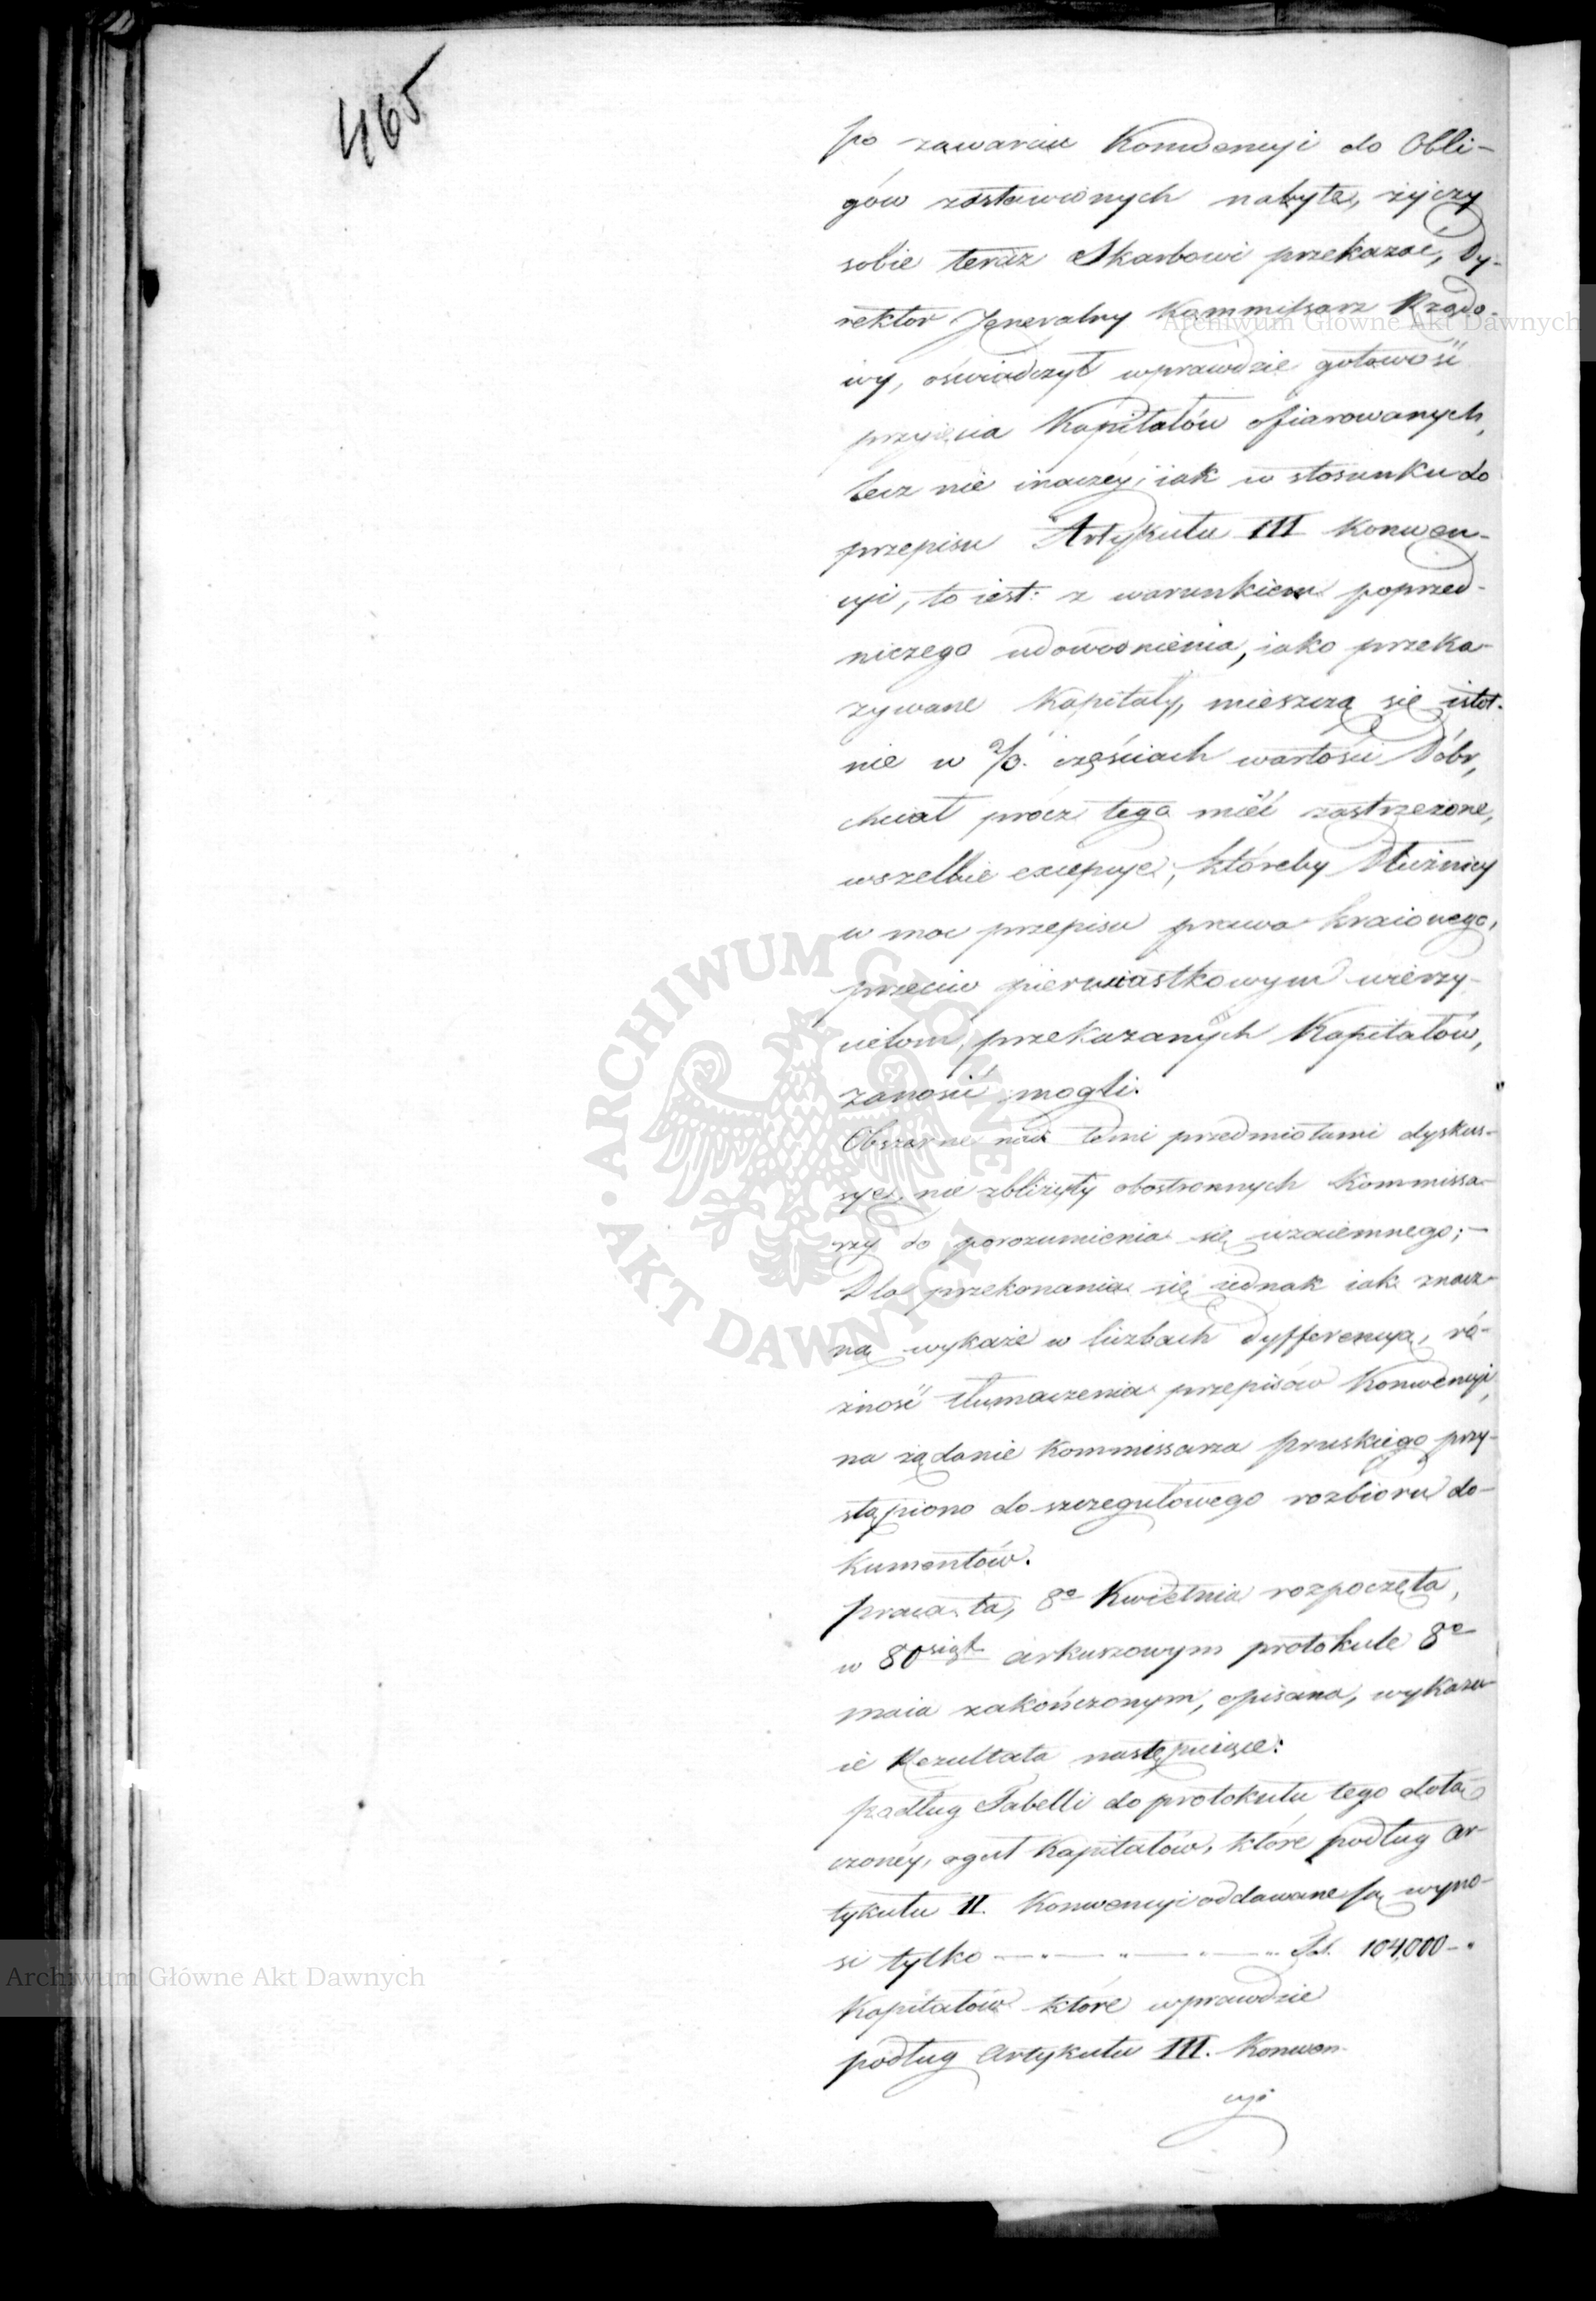 465
po zawarciu Konwencyi do Obli-
gów zostawionych nabyte, życzy
sobie teraz Skarbowi przekazać, Dy-
rektor Jeneralny Kommissarz Rządo-
wy, oświadczył wprawdzie gotowość
przyięcia Kapitałów ofiarowanych,
lecz nie inaczéy, iak w stosunku do
przepisu Artykułu III Konwen-
cyi, to iest: z warunkiem poprzed-
niczego udowodnienia, iako przeka-
zywane Kapitały, mieszczą się istot-
nie w 2/3. częściach wartości Dóbr,
chciał prócz tego mieć zastrzeżone,
wszelkie excepcye, któreby Dłużnicy
w moc przepisu prawa kraiowego,
przeciw pierwiastkowym wierzy-
cielom, przekazanych Kapitałów,
zanosić mogli.
Obszerne nad temi przedmiotami dyskus-
sye, nie zbliżyły obostronnych Kommissa-
rzy do porozumienia się wzaiemnego; —
Dla przekonania się iednak iak znacz-
ną wykaże w liczbach dyfferencyą, ró-
żność tłumaczenia przepisów Konwencyi,
na żądanie Kommissarza pruskiego przy-
stąpiono do szczegułowego rozbioru do-
kumentów.
Praca ta, 8o Kwietnia rozpoczęta,
w 80siąt arkuszowym protokule 8o
maia zakończonym, opisana, wykazu-
ie Rezultata następuiące:
Podług Tabelli do protokułu tego dołą-
czonéy, oguł Kapitałów, które podług Ar-
tykułu II. Konwencyi oddawane są wyno-
si tylko — " — " — " — " Tal. 104,000 — "
Kapitałów które wprawdzie
podług Artykułu III. Konwen-
cyi
ARCHIWUM GŁÓWNE AKT DAWNYCH
Archiwum Główne Akt Dawnych
Archiwum Główne Akt Dawnych